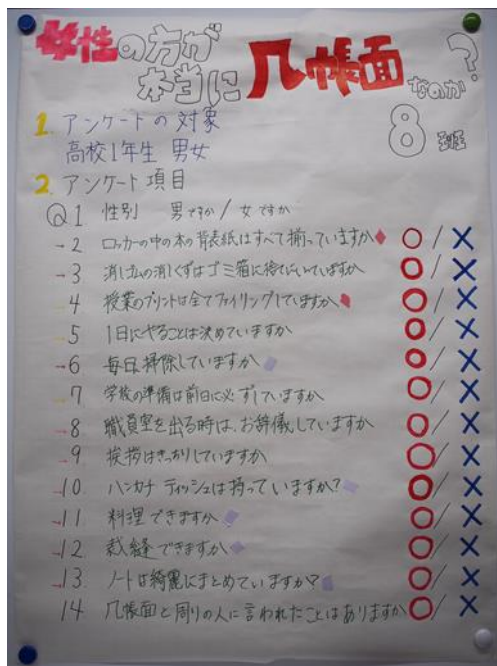 女性の方が
本当に几帳面なのか?
8班
1. アンケートの対象
高校1年生 男女
2. アンケート項目
Q1 性別 男ですか/女ですか
-2 ロッカーの中の本の背表紙はすべて揃っていますか ○/×
-3 消しゴムの消しくずはゴミ箱に捨てにいていますか ○/×
-4 授業のプリントは全てファイリングしていますか ○/×
-5 1日にやることは決めていますか ○/×
-6 毎日掃除していますか ○/×
-7 学校の準備は前日に必ずしていますか ○/×
-8 職員室を出る時は、お辞儀していますか ○/×
-9 挨拶はきっちりしていますか ○/×
-10. ハンカチ ティッシュは持っていますか? ○/×
-11 料理できますか ○/×
-12 裁縫できますか ○/×
-13. ノートは綺麗にまとめていますか? ○/×
14 几帳面と周りの人に言われたことはありますか ○/×